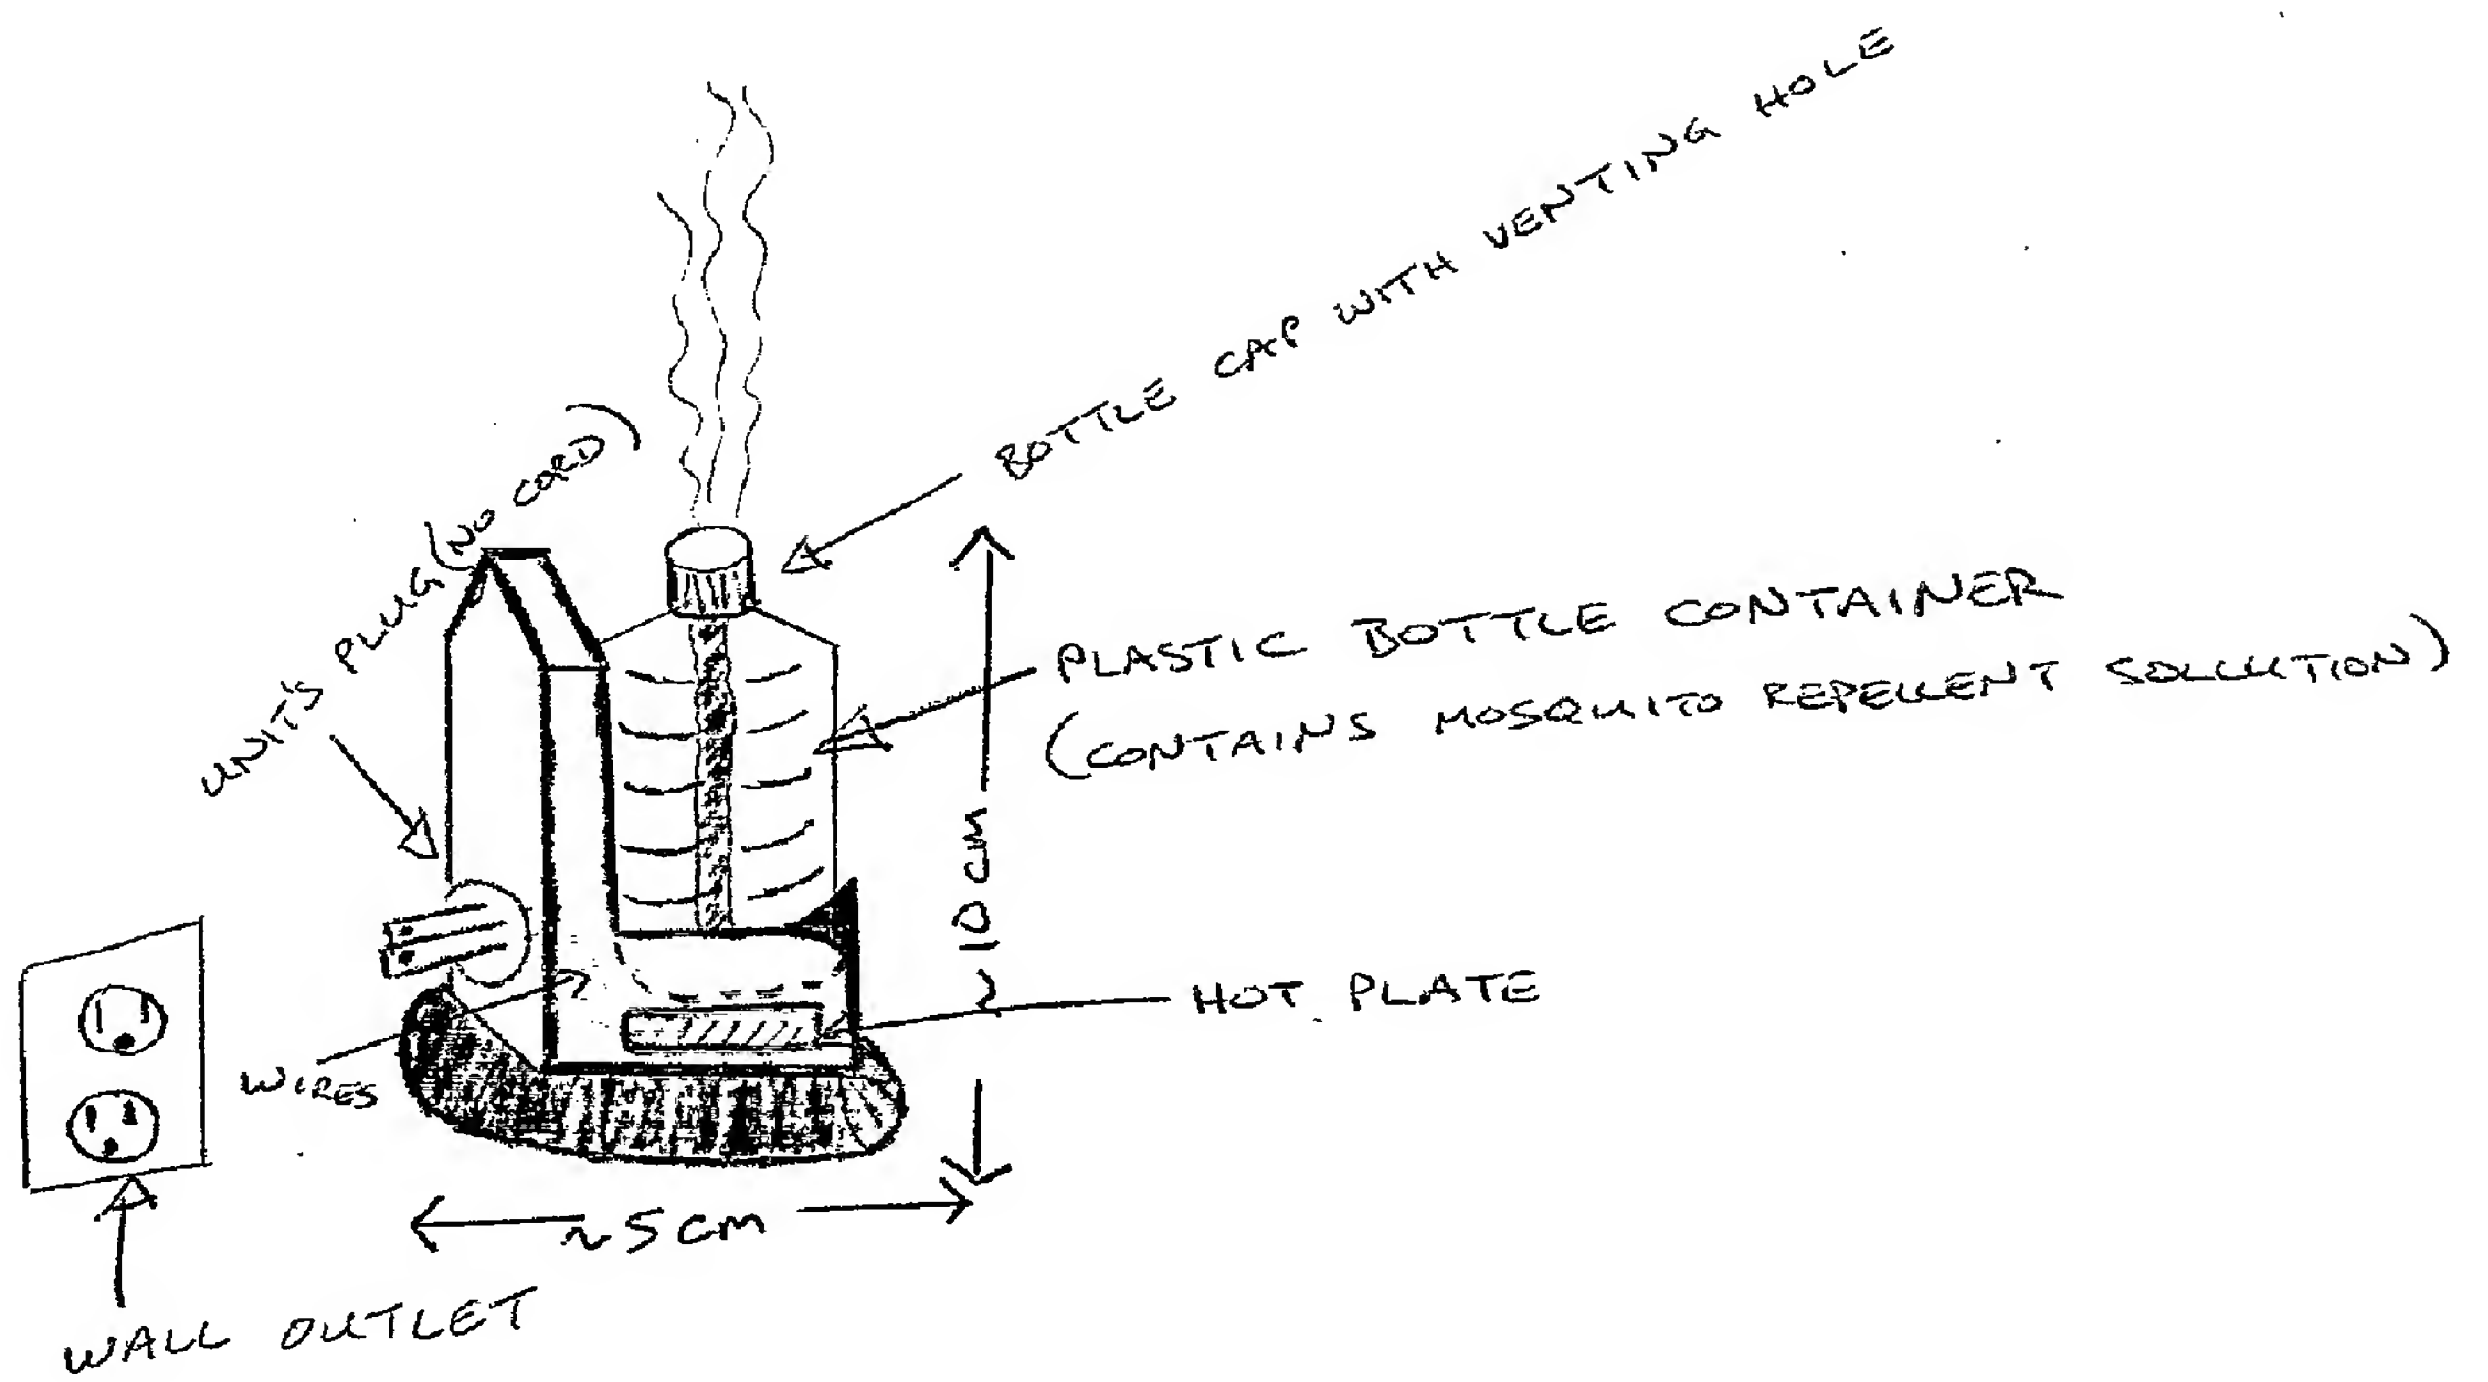 BOTTLE CAP WITH VENTING HOLE
UNIT'S PLUG (NO CORD)
PLASTIC BOTTLE CONTAINER
(CONTAINS MOSQUITO REPELLENT SOLLUTION)
~10 cm
HOT PLATE
WIRES
~5 cm
WALL OUTLET